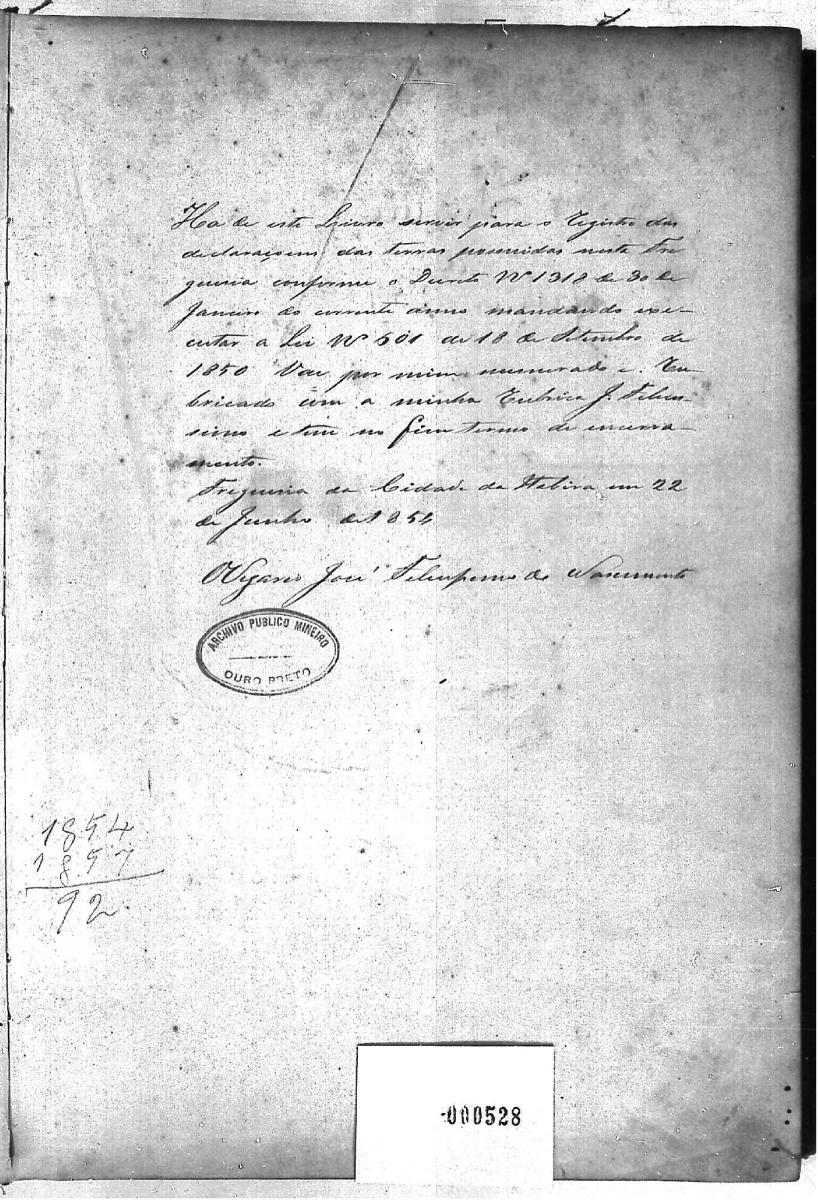 Ha de este Livro servir para o Registro das
declaraçoens das terras possuidas nesta Fre
guesia conforme o Decreto Nº 1318 de 30 de
Janeiro do corrente anno mandando exe-
cutar a Lei Nº 601 de 18 de Setembro de
1850 Vai por mim numerado e Ru-
bricado com a minha Rubrica J. Felicis-
simo e tem no fim termo de encerra-
mento.
Freguesia da Cidade da Itabira em 22
de Junho de 1854
O Vigario José Felicissimo do Nascimento
ARCHIVO PUBLICO MINEIRO
OURO PRETO
1854
1857
92
000528